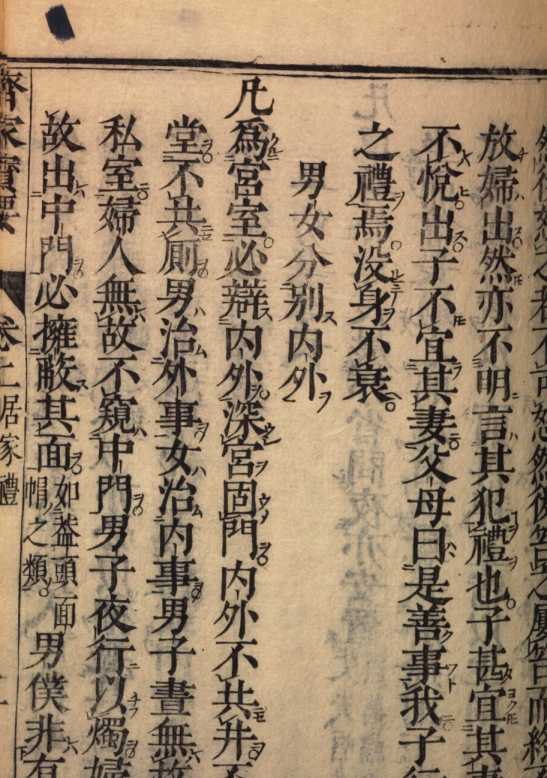 然後怒之若不可怒然後笞之屢笞而終
放婦出然亦不明言其犯禮也子甚宜其
不悅出子不宜其妻父母曰是善事我子行
之禮焉没身不衰
男女分別内外
凡爲宮室必辯内外深宮固門内外不共井不
堂不共厠男治外事女治内事男子晝無故
私室婦人無故不窺中門男子夜行以燭婦
故出中門必擁蔽其面如蓋頭面帽之類男僕非有
齊家寶要 卷上居家禮